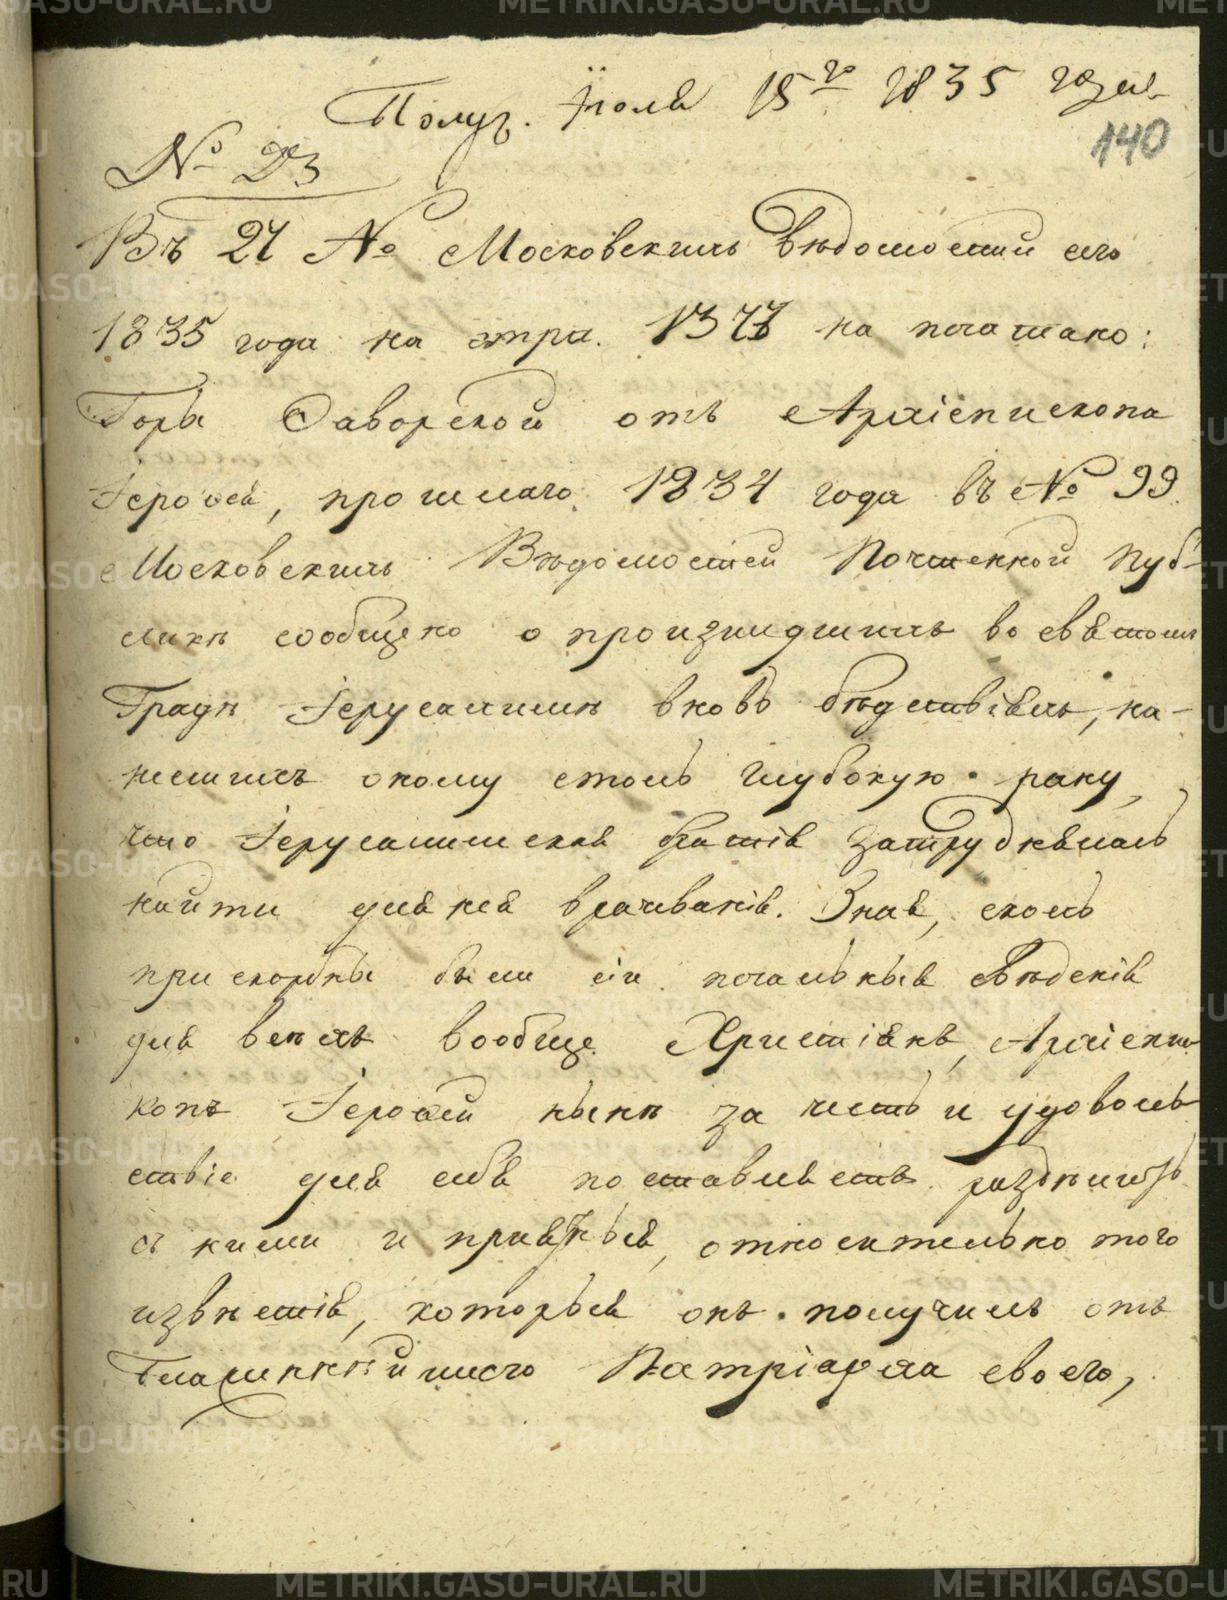 Получ. Іюля 15го 1835 года
140
№ 23
Въ 27 № Московскихъ Вѣдомостей сего
1835 года на стра. 1377 на печатано:
Горы Ѳаворской отъ Архіепископа
Іероѳея, прошлаго 1834 года въ № 99
Московскихъ Вѣдомостей Почтенной Пуб-
ликѣ сообщено о произшедшихъ во святомъ
Градѣ Іерусалимѣ вновь бѣдствіяхъ, на-
несшихъ оному столь глубокую рану,
что Іерусалимская братія затруднялась
найти для нея врачеваніе. Зная, сколь
прискорбны были сіи печальныя свѣденія
для всѣхъ вообще Христіянъ, Архіепис
копъ Іероѳей нынѣ за честь и удоволь
ствіе для себя поставляетъ раздѣлить
съ ними и пріятныя, относительно того
извѣстія, которыя онъ получилъ отъ
Блаженнѣйшаго Патріарха своего,
METRIKI.GASO-URAL.RU